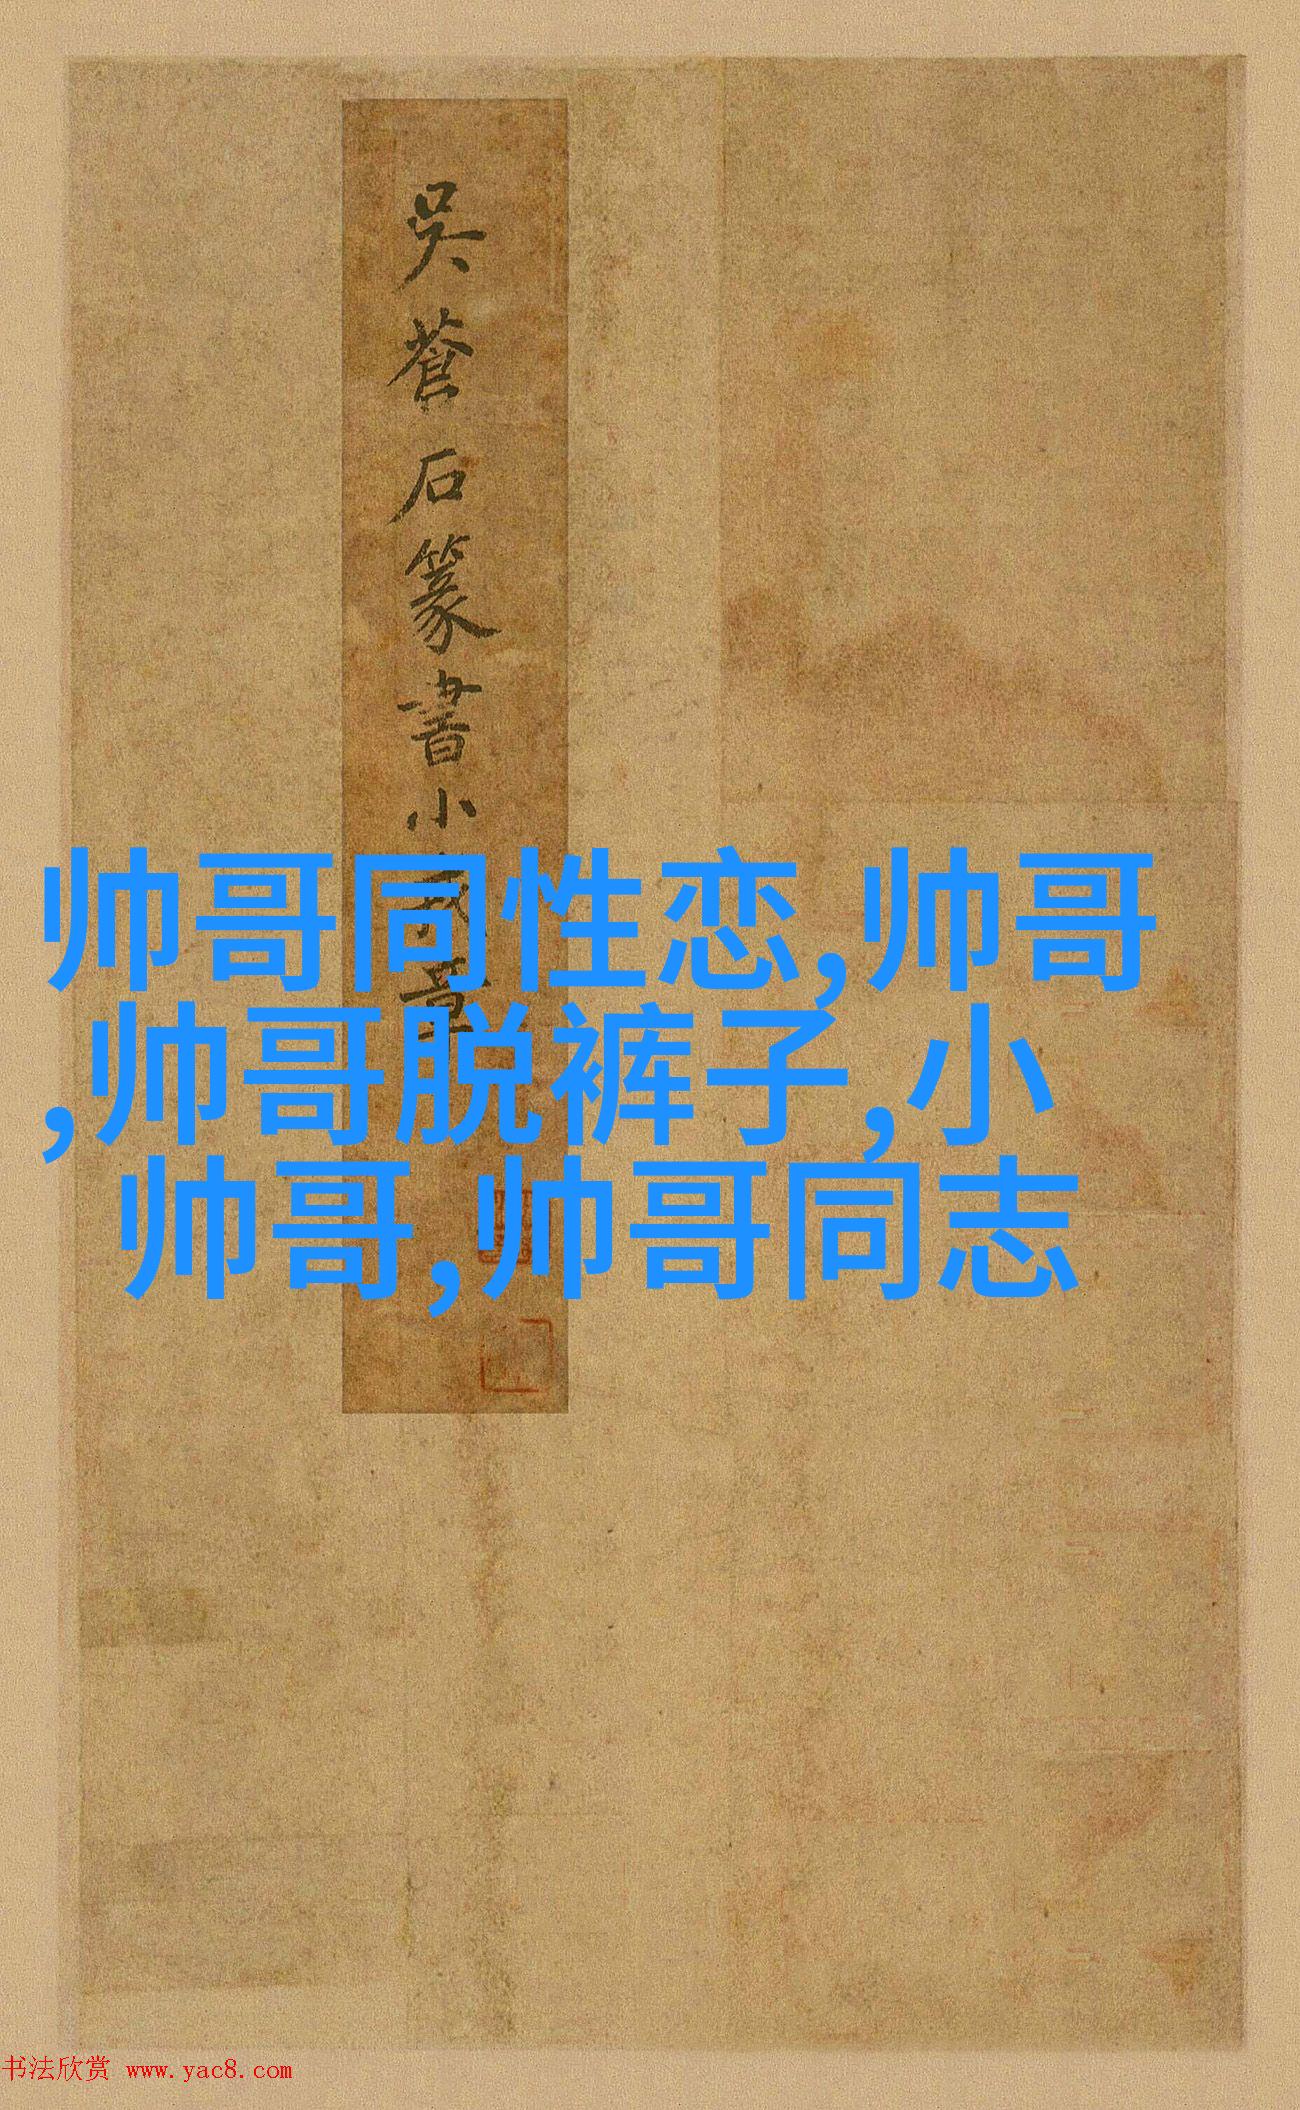 吳蒼石篆書小
章
帅哥同性恋,帅哥
,帅哥脱裤子,小
帅哥,帅哥同志
书法欣赏 www.yac8.com